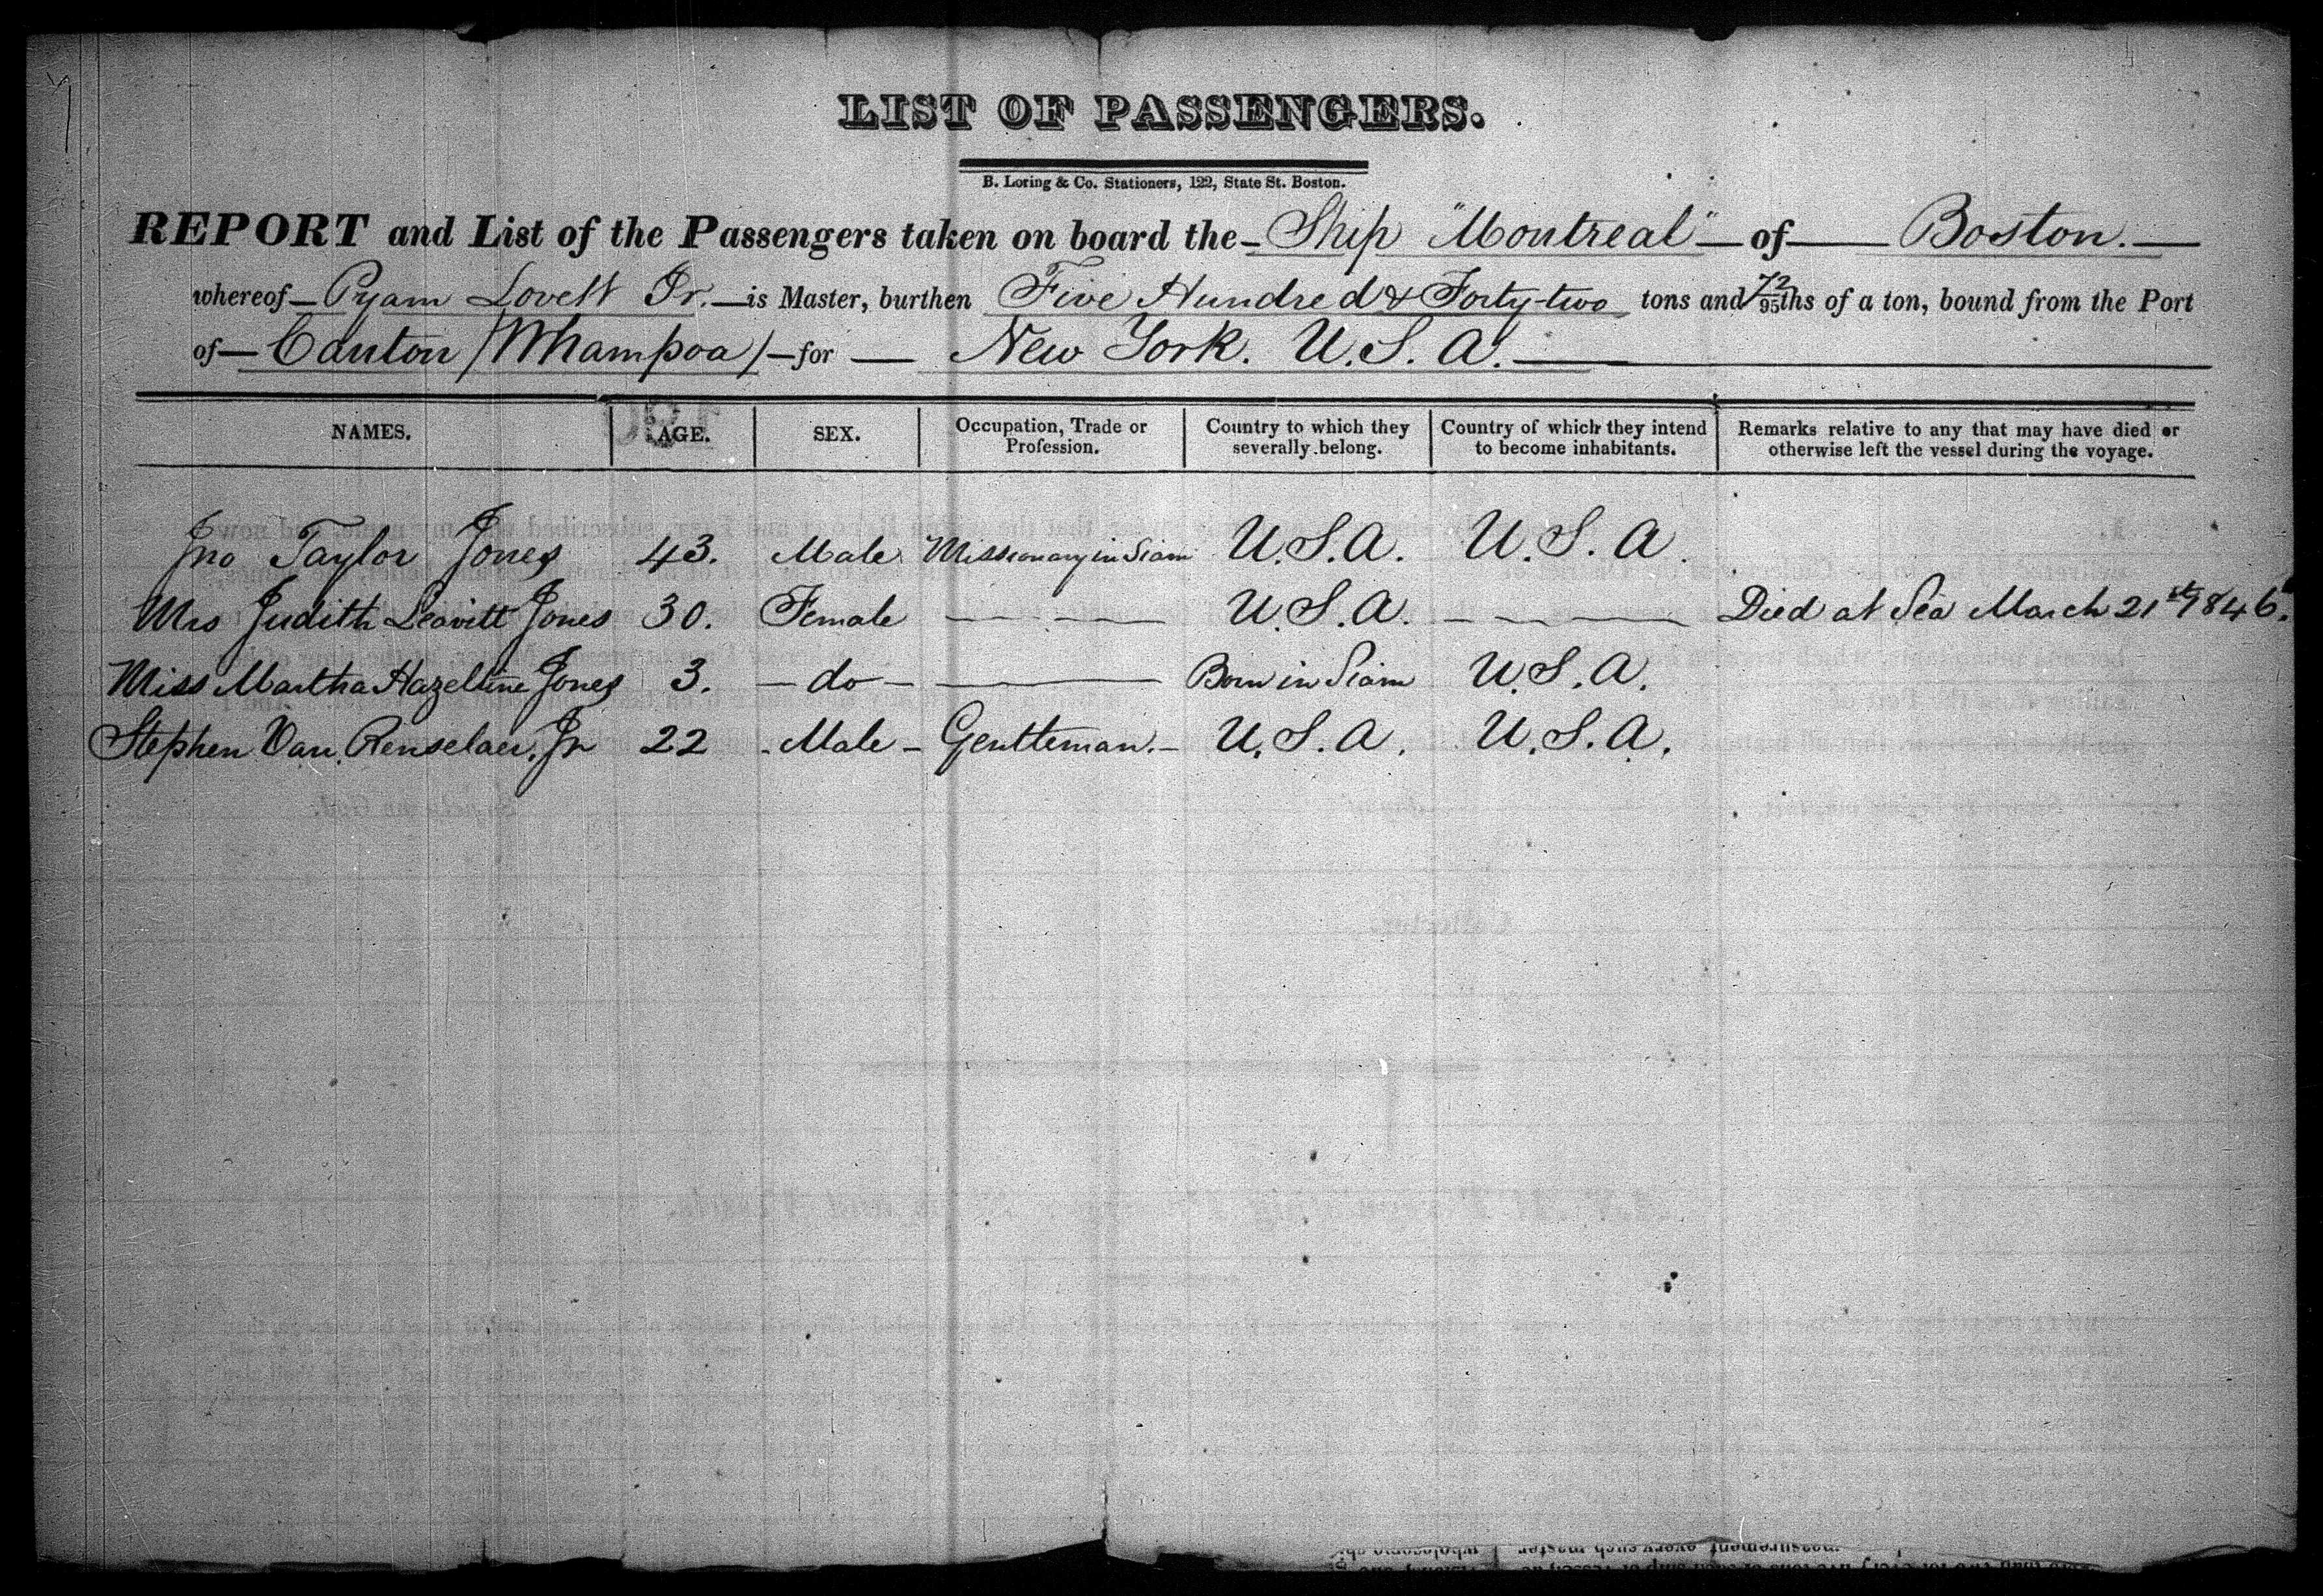 LIST OF PASSENGERS.
B. Loring & Co. Stationers, 122, State St. Boston.
REPORT and List of the Passengers taken on board the Ship "Montreal" of Boston.
whereof Pyam Lovett Jr. is Master, burthen Five Hundred & Forty-two tons and 72/95ths of a ton, bound from the Port
of Canton /Whampoa/ for New York. U.S.A.
NAMES. AGE. SEX. Occupation, Trade or Profession. Country to which they severally belong. Country of which they intend to become inhabitants. Remarks relative to any that may have died or otherwise left the vessel during the voyage.
Jno Taylor Jones 43. Male Missionary in Siam U.S.A. U.S.A.
Mrs Judith Leavitt Jones 30. Female U.S.A. Died at Sea March 21st 1846.
Miss Martha Hazeltine Jones 3. do Born in Siam U.S.A.
Stephen Van Renselaer, Jr 22 Male Gentleman. U.S.A. U.S.A.